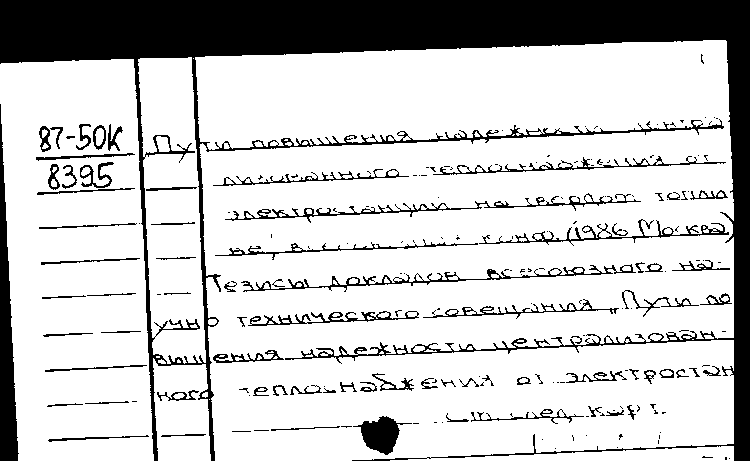 87-50К
8395
Пути повышения надежности центра
лизованного теплоснабжения от
электростанций на твердом топли
ве, конф. (1986, Москва)
Тезисы докладов всесоюзного на-
учно технического совещания "Пути по
вышения надежности централизован-
ного теплоснабжения от электростан
См. след. карт.